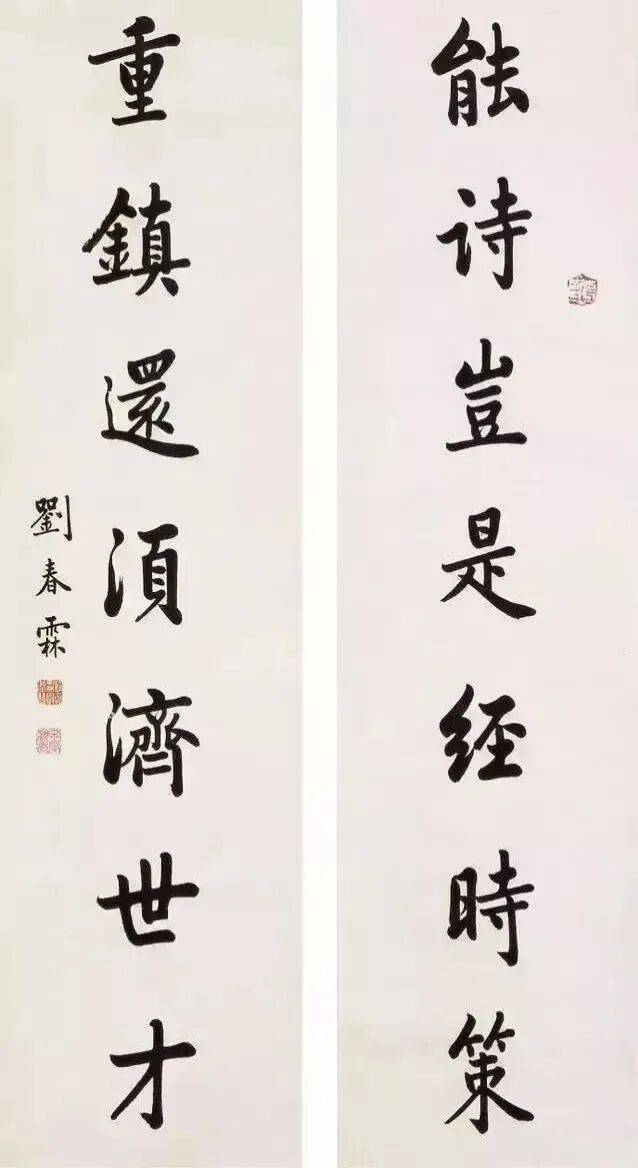 能诗豈是经時策
重鎮還須濟世才
劉春霖